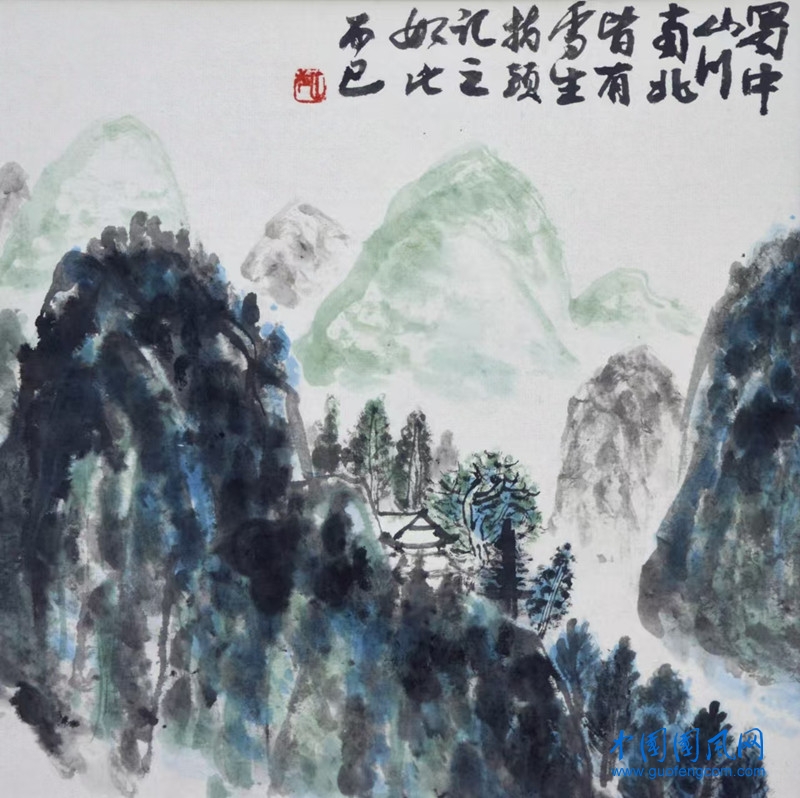 蜀中
山川
南北
皆有
生
指
记之
如此
而已
中国国风网
www.guofengcom.com